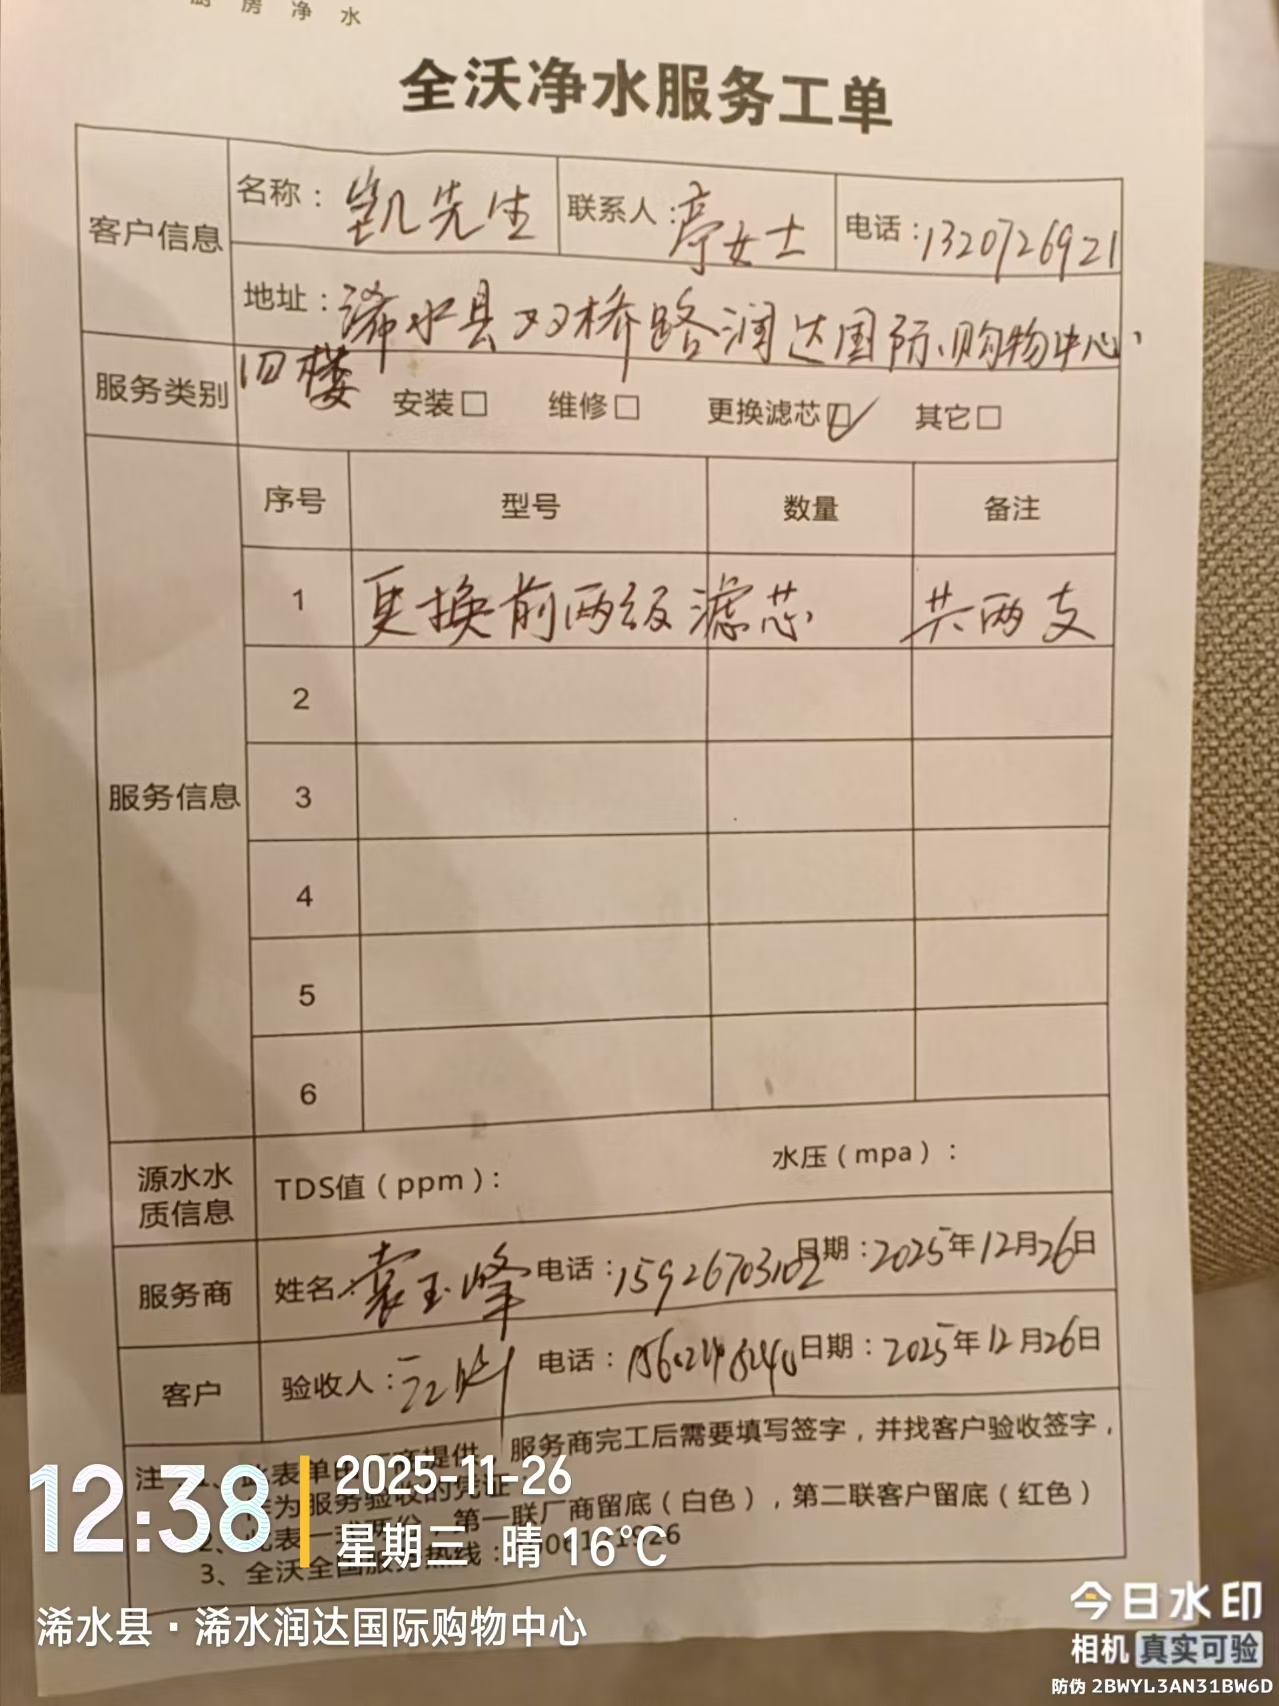 厨房净水
全沃净水服务工单
客户信息
名称：凯先生 联系人：亭女士 电话：1320726921
地址：浠水县双桥路润达国际购物中心
四楼
服务类别 安装□ 维修□ 更换滤芯☑ 其它□
服务信息
序号 型号 数量 备注
1 更换前两级滤芯 共两支
2
3
4
5
6
源水水质信息 TDS值（ppm）： 水压（mpa）：
服务商 姓名：袁玉峰 电话：15926703102 日期：2025年12月26日
客户 验收人： 电话： 日期：2025年12月26日
注：1、此表单由厂商提供，服务商完工后需要填写签字，并找客户验收签字，
作为服务验收的凭证
2、此表一式两份，第一联厂商留底（白色），第二联客户留底（红色）
3、全沃全国服务热线：
12:38
2025-11-26
星期三 晴 16℃
浠水县·浠水润达国际购物中心
今日水印
相机 真实可验
防伪 2BWYL3AN31BW6D